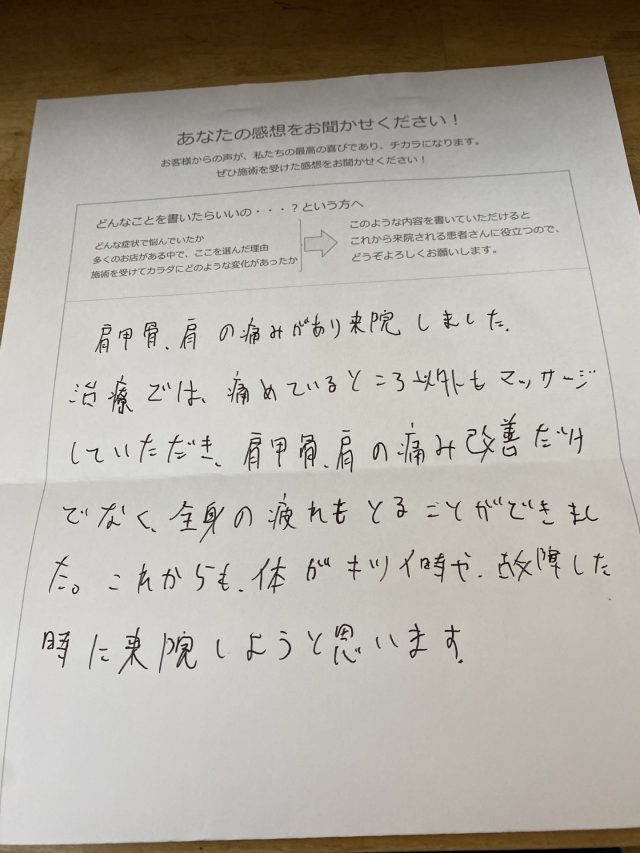 あなたの感想をお聞かせください！
お客様からの声が、私たちの最高の喜びであり、チカラになります。
ぜひ施術を受けた感想をお聞かせください！
どんなことを書いたらいいの・・・？という方へ
どんな症状で悩んでいたか
多くのお店がある中で、ここを選んだ理由
施術を受けてカラダにどのような変化があったか
このような内容を書いていただけると
これから来院される患者さんに役立つので、
どうぞよろしくお願いします。
肩甲骨、肩の痛みがあり来院しました。
治療では、痛めているところ以外もマッサージ
していただき、肩甲骨、肩の痛み改善だけ
でなく、全身の疲れもとることができまし
た。これからも、体がキツイ時や、故障した
時に来院しようと思います。